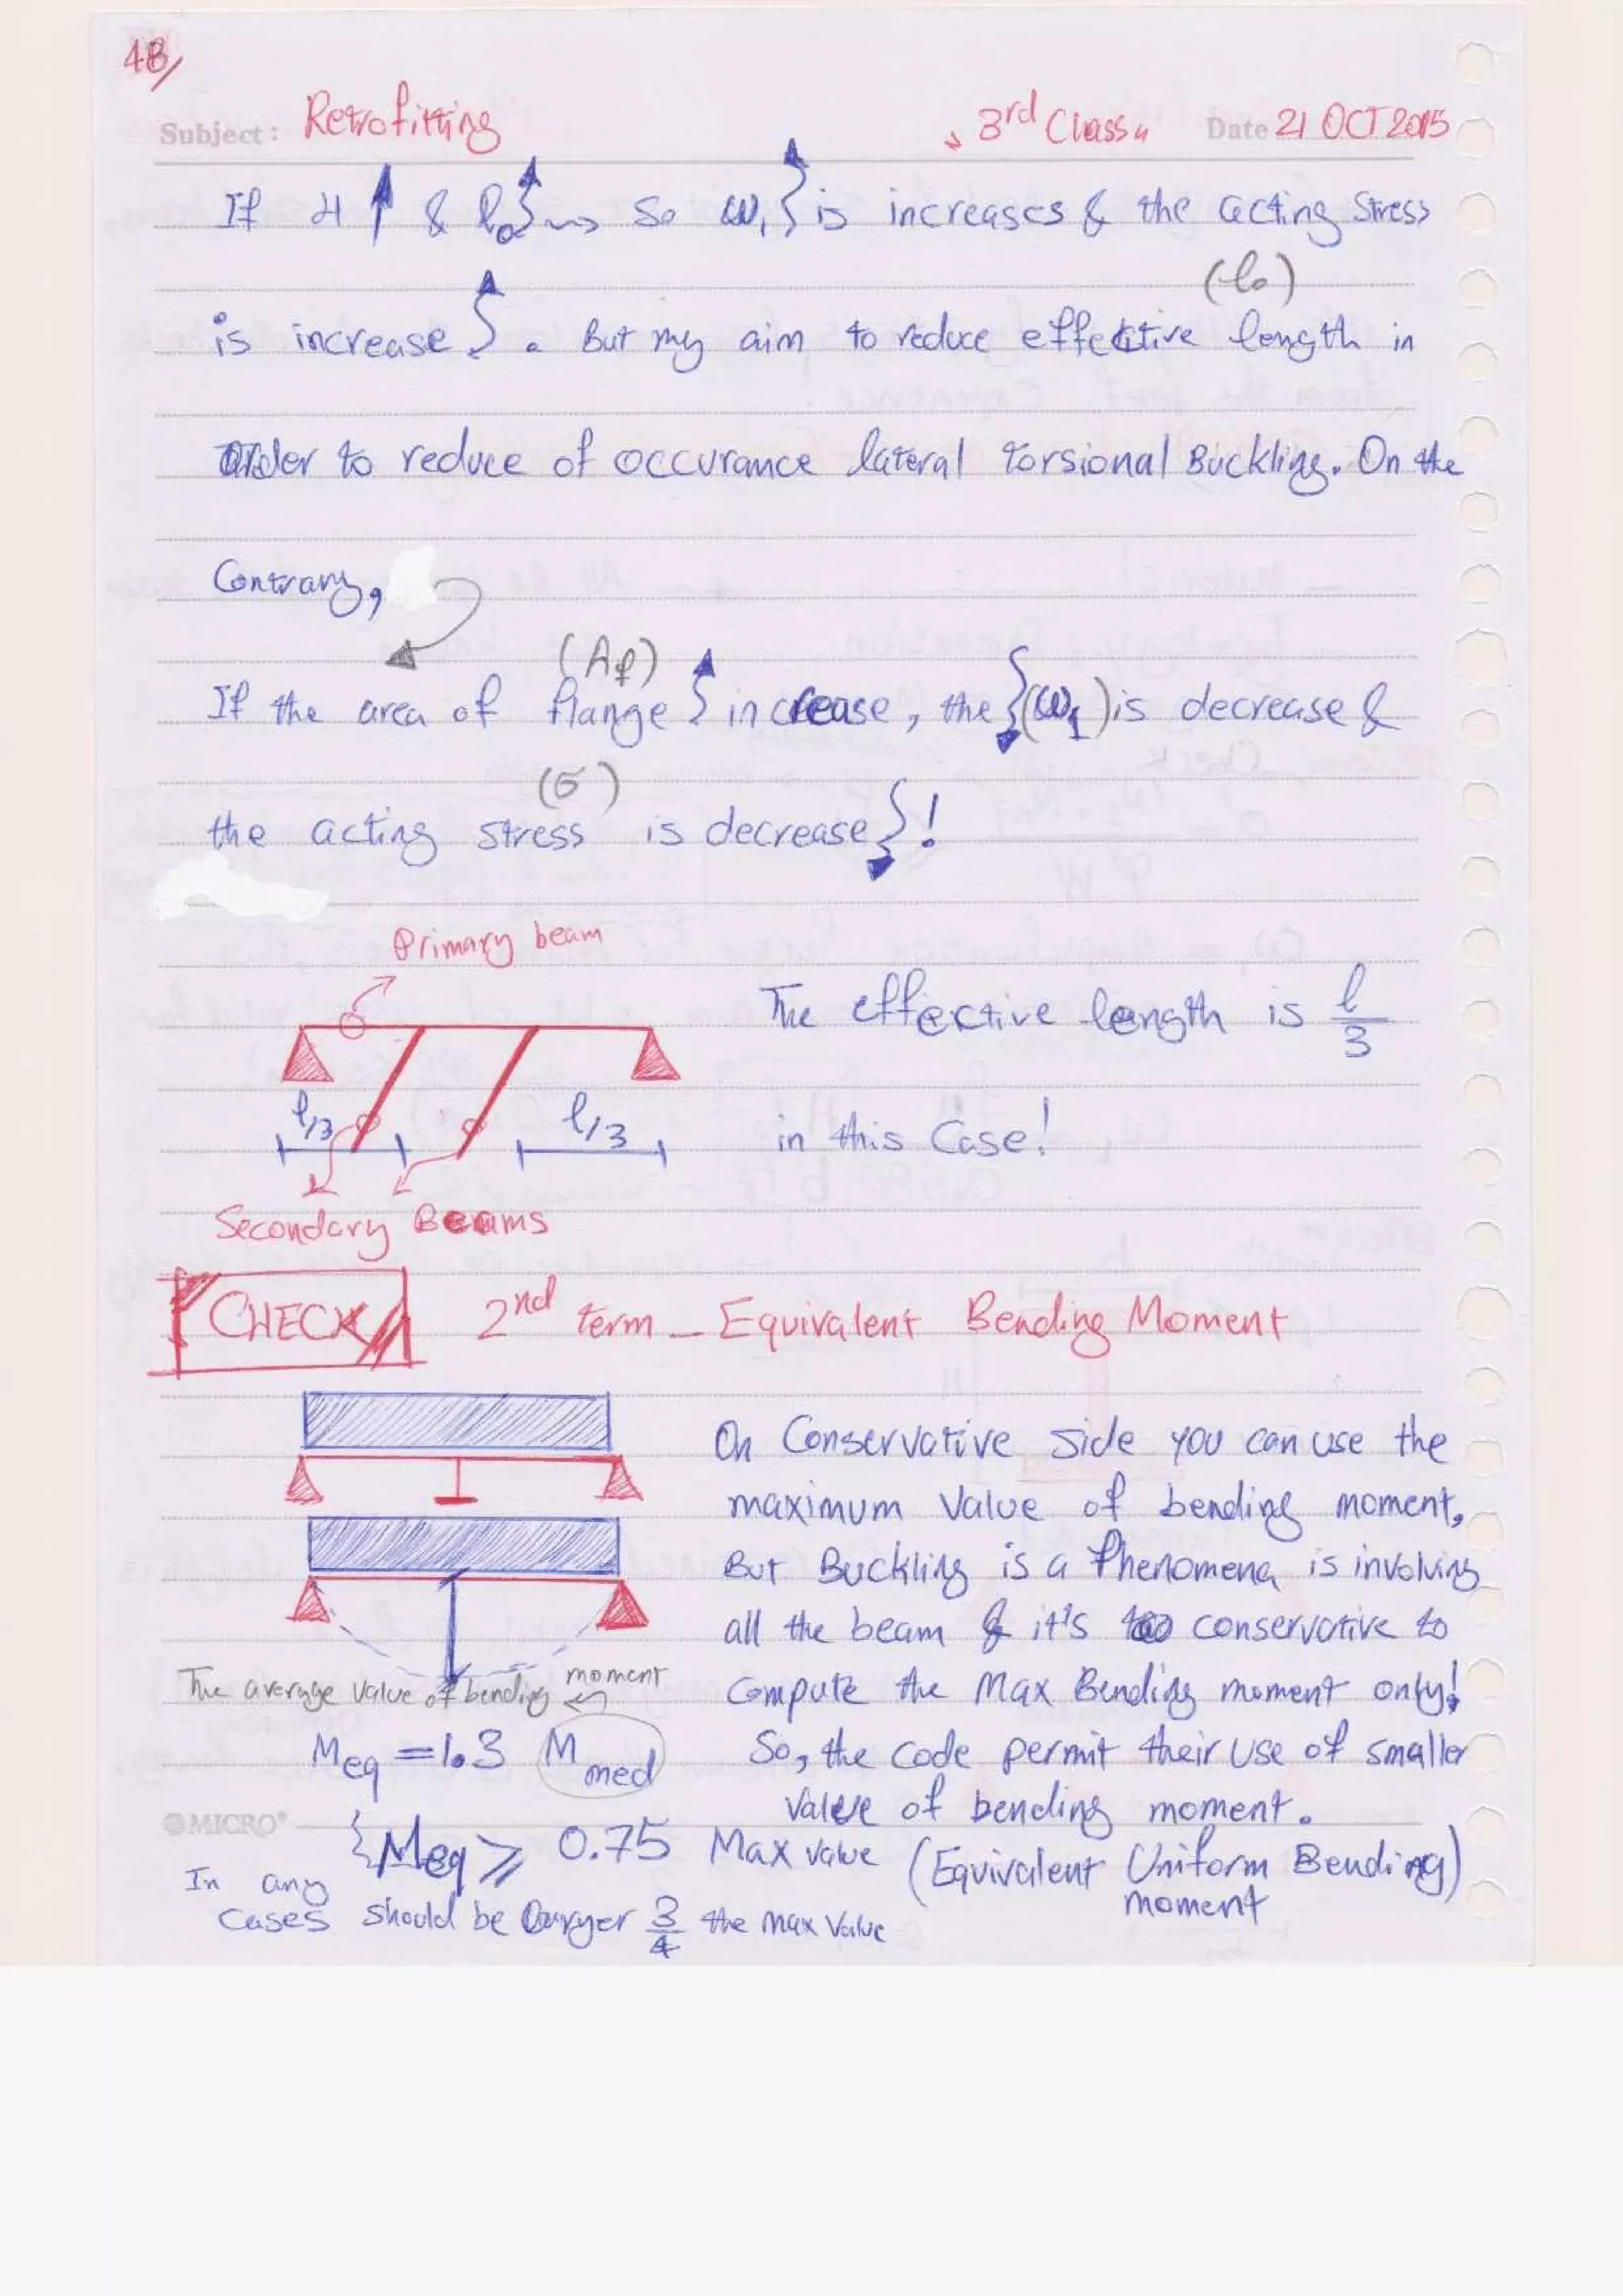 4B/
Subject: Retrofitting 3rd Class Date 21 OCT 2015
If H & l₀ so ω₁ is increases & the acting stress
(l₀)
is increase. But my aim to reduce effective length in
Order to reduce of occurance lateral torsional Buckling. On the
Contrary,
(Af)
If the area of flange increase, the (ω₁) is decrease &
(σ)
the acting stress is decrease!
Primary beam
The effective length is l/3
l/3 l/3
in this Case!
Secondary Beams
CHECK 2nd term - Equivalent Bending Moment
On Conservative side you can use the
maximum Value of bending moment,
But Buckling is a Phenomena is involving
all the beam & it's too conservative to
The average value of bending moment
compute the Max Bending moment only!
Meq = 1.3 Mmed
So, the code permit their use of smaller
Value of bending moment.
MICRO®
Meq ⩾ 0.75 Max value (Equivalent Uniform Bending)
moment
In any
cases should be Larger 3/4 the max Value